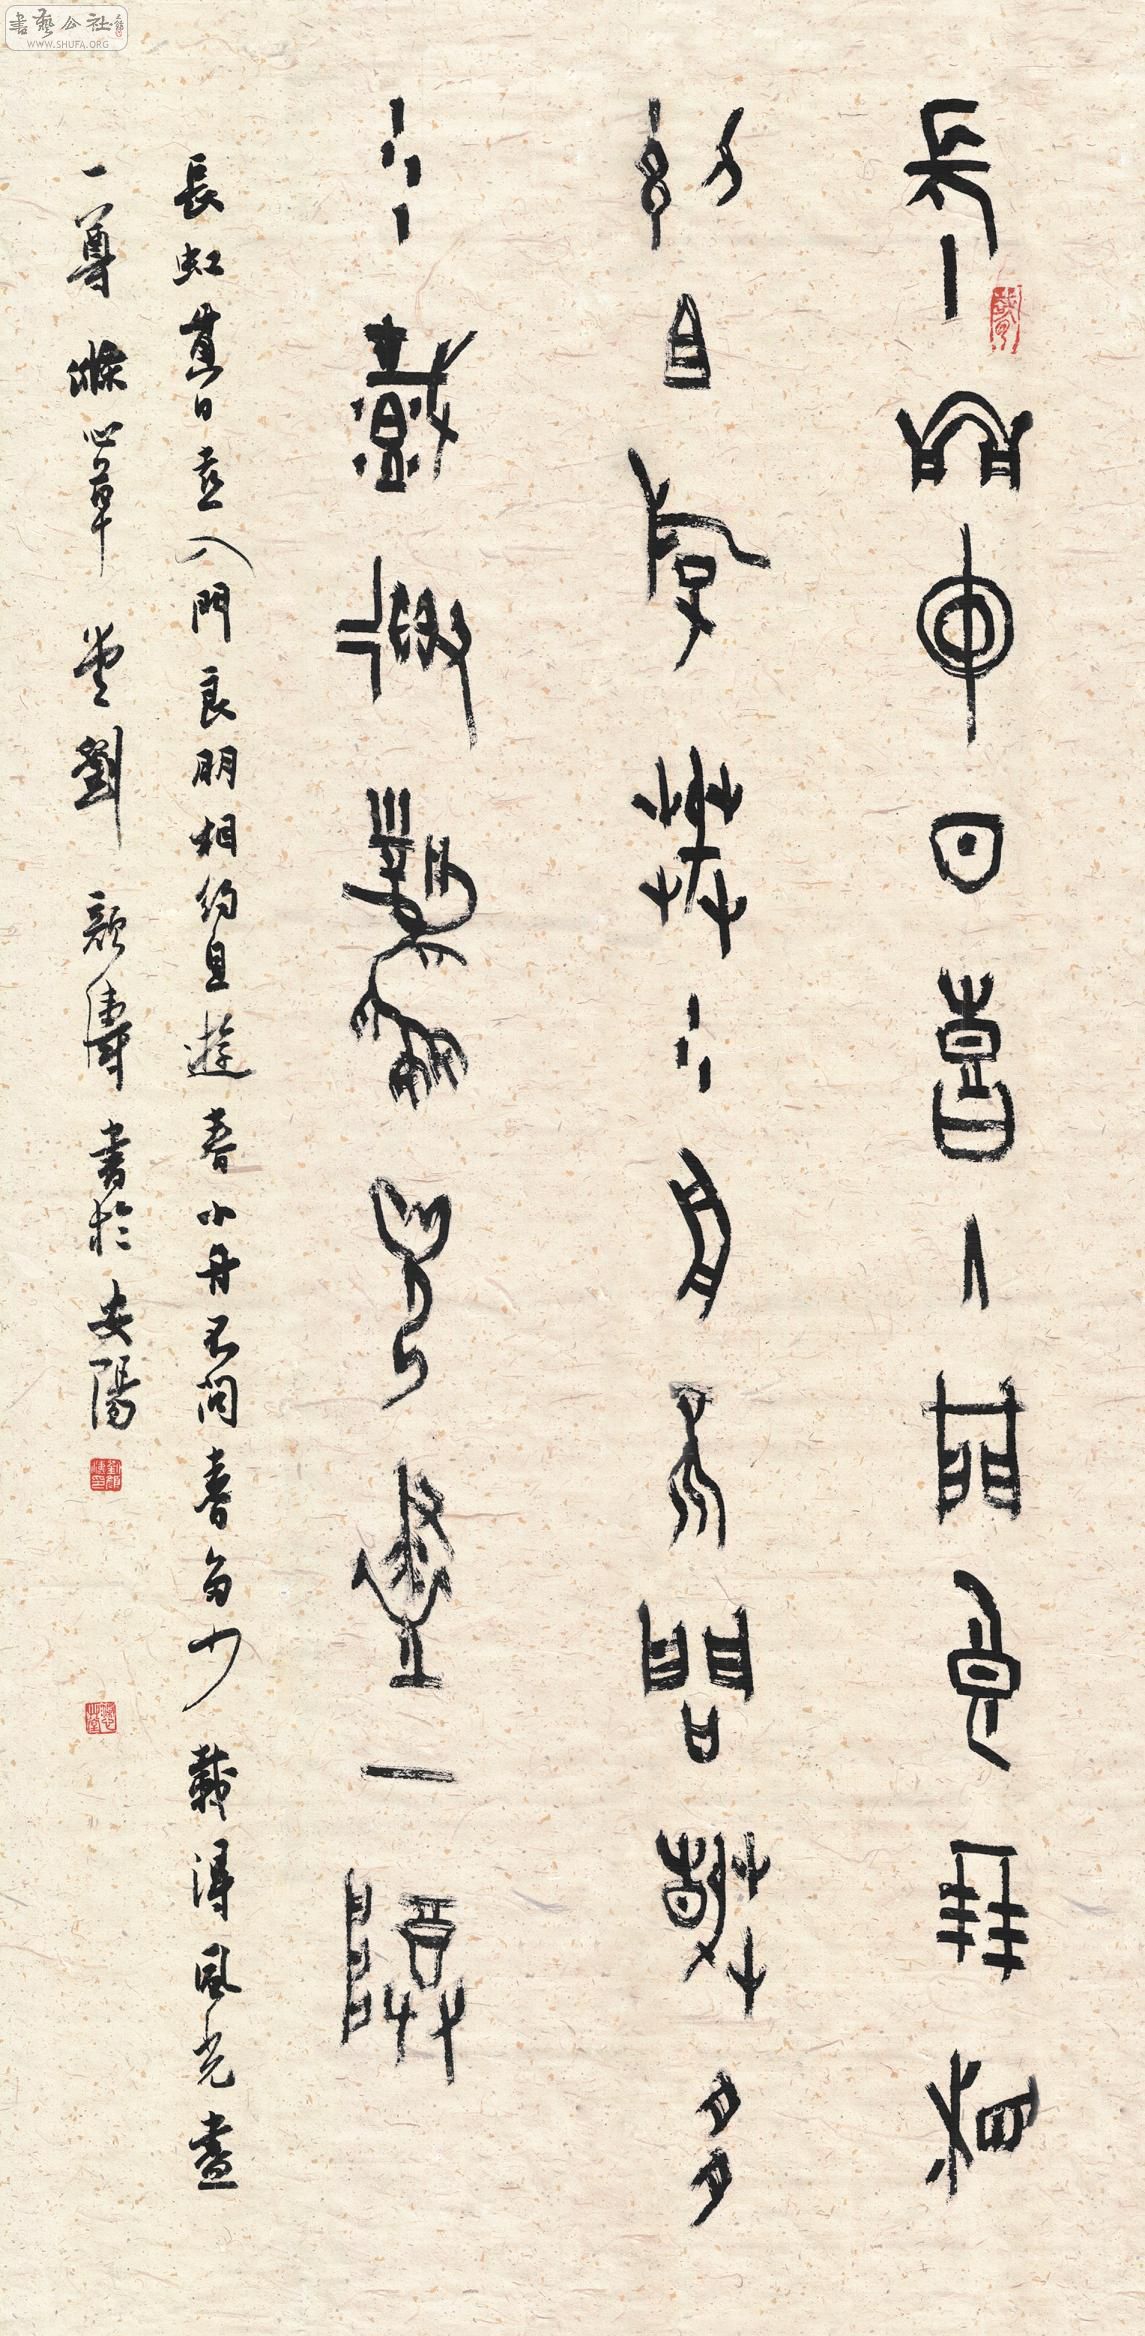 書藝公社
WWW.SHUFA.ORG
長虹貫日喜入門良朋相
約且游春小舟不問春多
少載得風光盡一尊
長虹貫日喜入門良朋相約且遊春小舟不問春多少載得風光盡
一尊 滌心草堂劉顏濤書於安陽